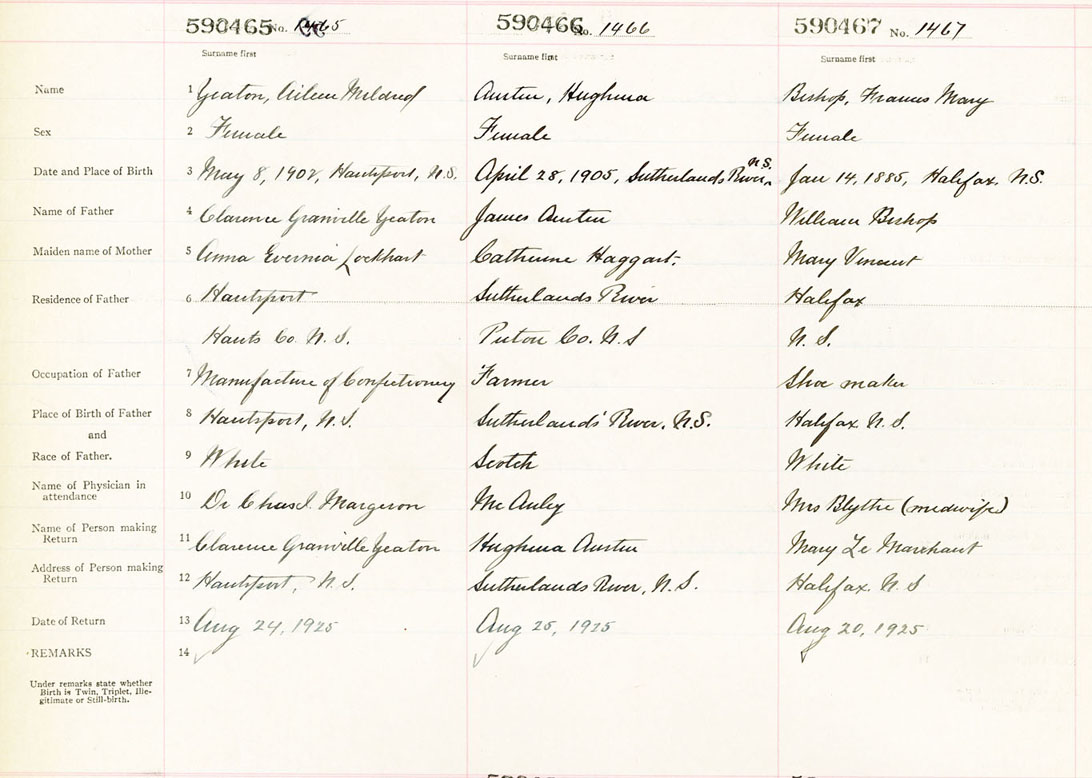 590465 No. 1465 590466 No. 1466 590467 No. 1467
Surname first Surname first Surname first
Name 1 Yeaton, Aileen Mildred Austen, Hughena Bishop, Frances Mary
Sex 2 Female Female Female
N.S.
Date and Place of Birth 3 May 8, 1902, Hantsport, N.S. April 28, 1905, Sutherlands River, Jan 14, 1885, Halifax, N.S.
Name of Father 4 Clarence Granville Yeaton James Austen William Bishop
Maiden name of Mother 5 Anna Evernia Lockhart Catherine Haggart. Mary Vincent
Residence of Father 6 Hantsport Sutherlands River Halifax
Hants Co. N.S. Pictou Co. N.S N.S.
Occupation of Father 7 Manufacture of Confectionery Farmer Shoe maker
Place of Birth of Father 8 Hantsport, N.S. Sutherlands' River, N.S. Halifax N.S.
and
Race of Father. 9 White Scotch White
Name of Physician in
attendance 10 Dr Chas I. Margeson Mc Auley Mrs Blythe (midwife)
Name of Person making
Return 11 Clarence Granville Yeaton Hughena Austen Mary Le Marchant
Address of Person making
Return 12 Hantsport, N.S. Sutherlands River, N.S. Halifax. N.S
Date of Return 13 Aug 24, 1925 Aug 25, 1925 Aug 20, 1925
REMARKS 14
Under remarks state whether
Birth is Twin, Triplet, Ille-
gitimate or Still-birth.